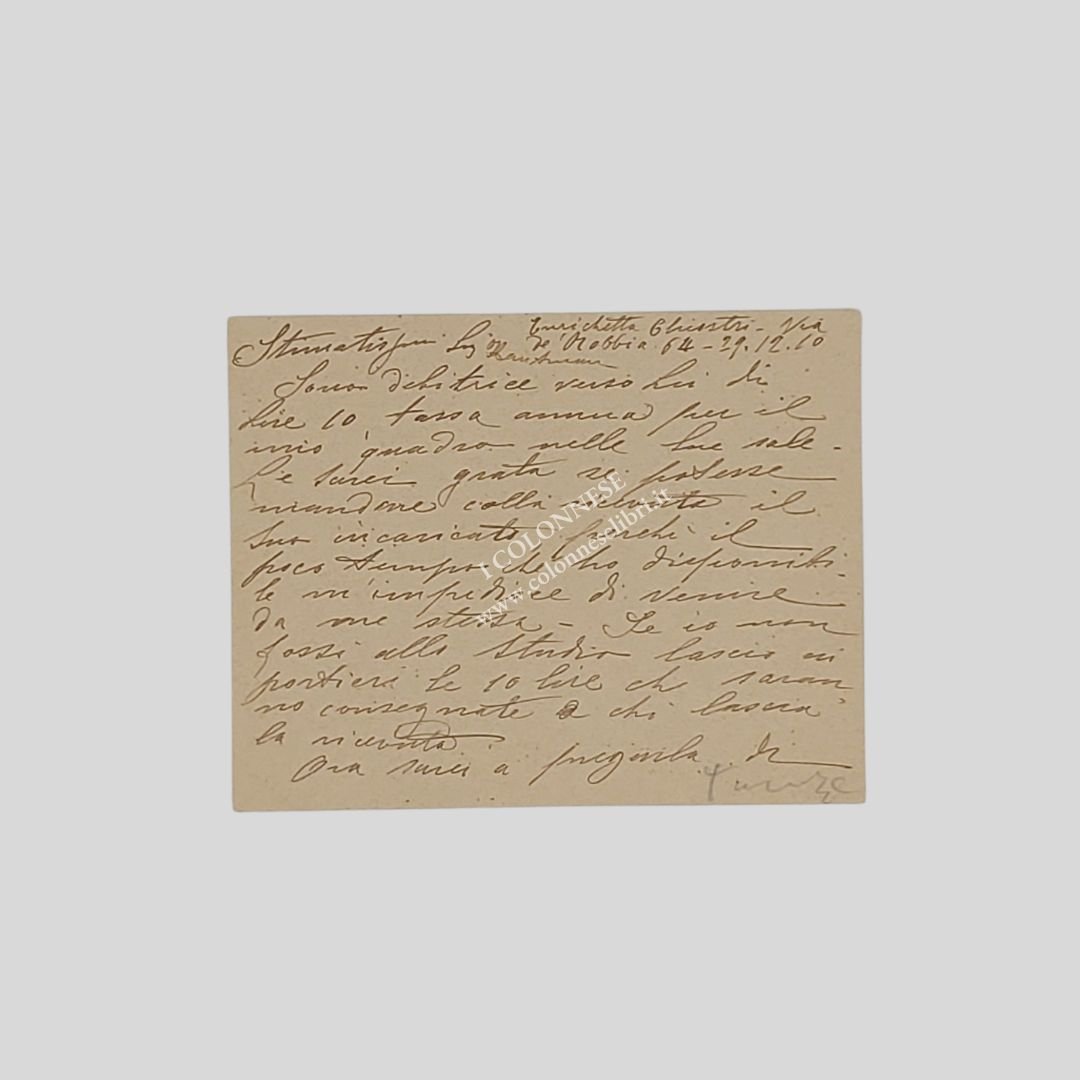 Enrichetta Chiostri - Via
de' Robbia 64 - 29.12.10
Stimatissimo Sig
Sono debitrice verso Lei di
Lire 10 tassa annua per il
mio quadro nelle Sue sale -
Le sarei grata se potesse
mandare colla ricevuta il
suo incaricato, perchè il
poco tempo che ho disponibi-
le m'impedisce di venire
da me stessa - Se io non
fossi allo studio lascio ai
portieri le 10 lire che saran
no consegnate a chi lascia
la ricevuta.
Ora sarei a pregarla di
Firenze
I COLONNESE
www.colonneselibri.it